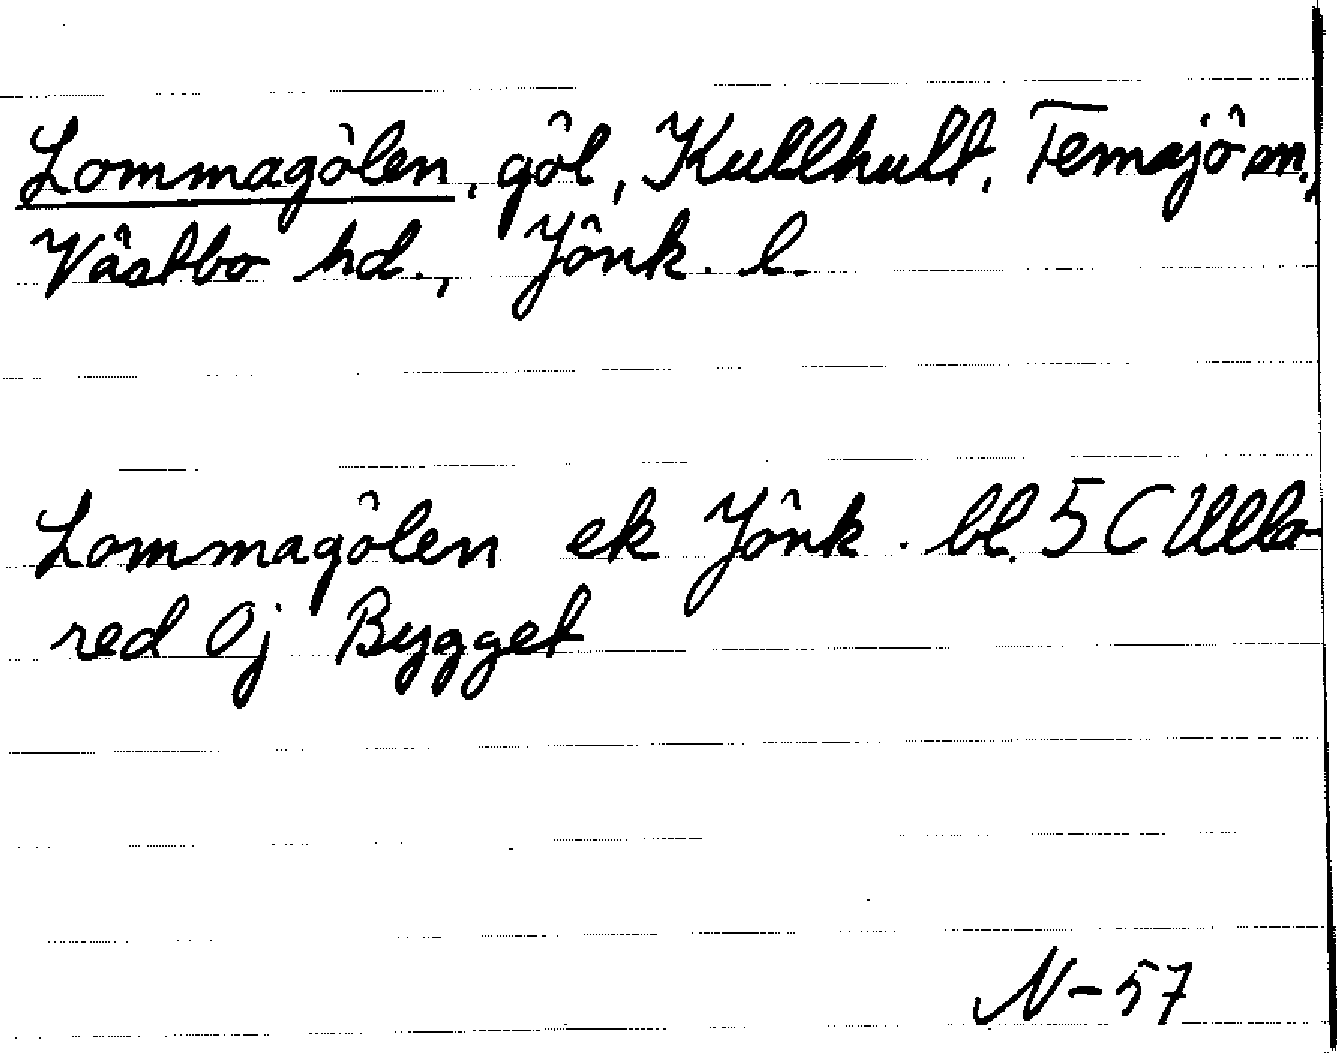 Lommagölen, göl, Kullhult, Femsjö sn.,
Västbo hd., Jönk. l.
Lommagölen ek Jönk. bl. 5 C Ulla-
red 0j Bygget
N-57